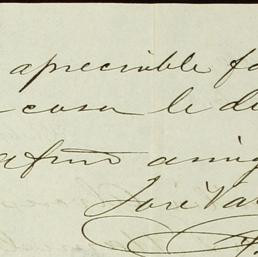 apreciable fa
casa le de
afmo amig
José Va